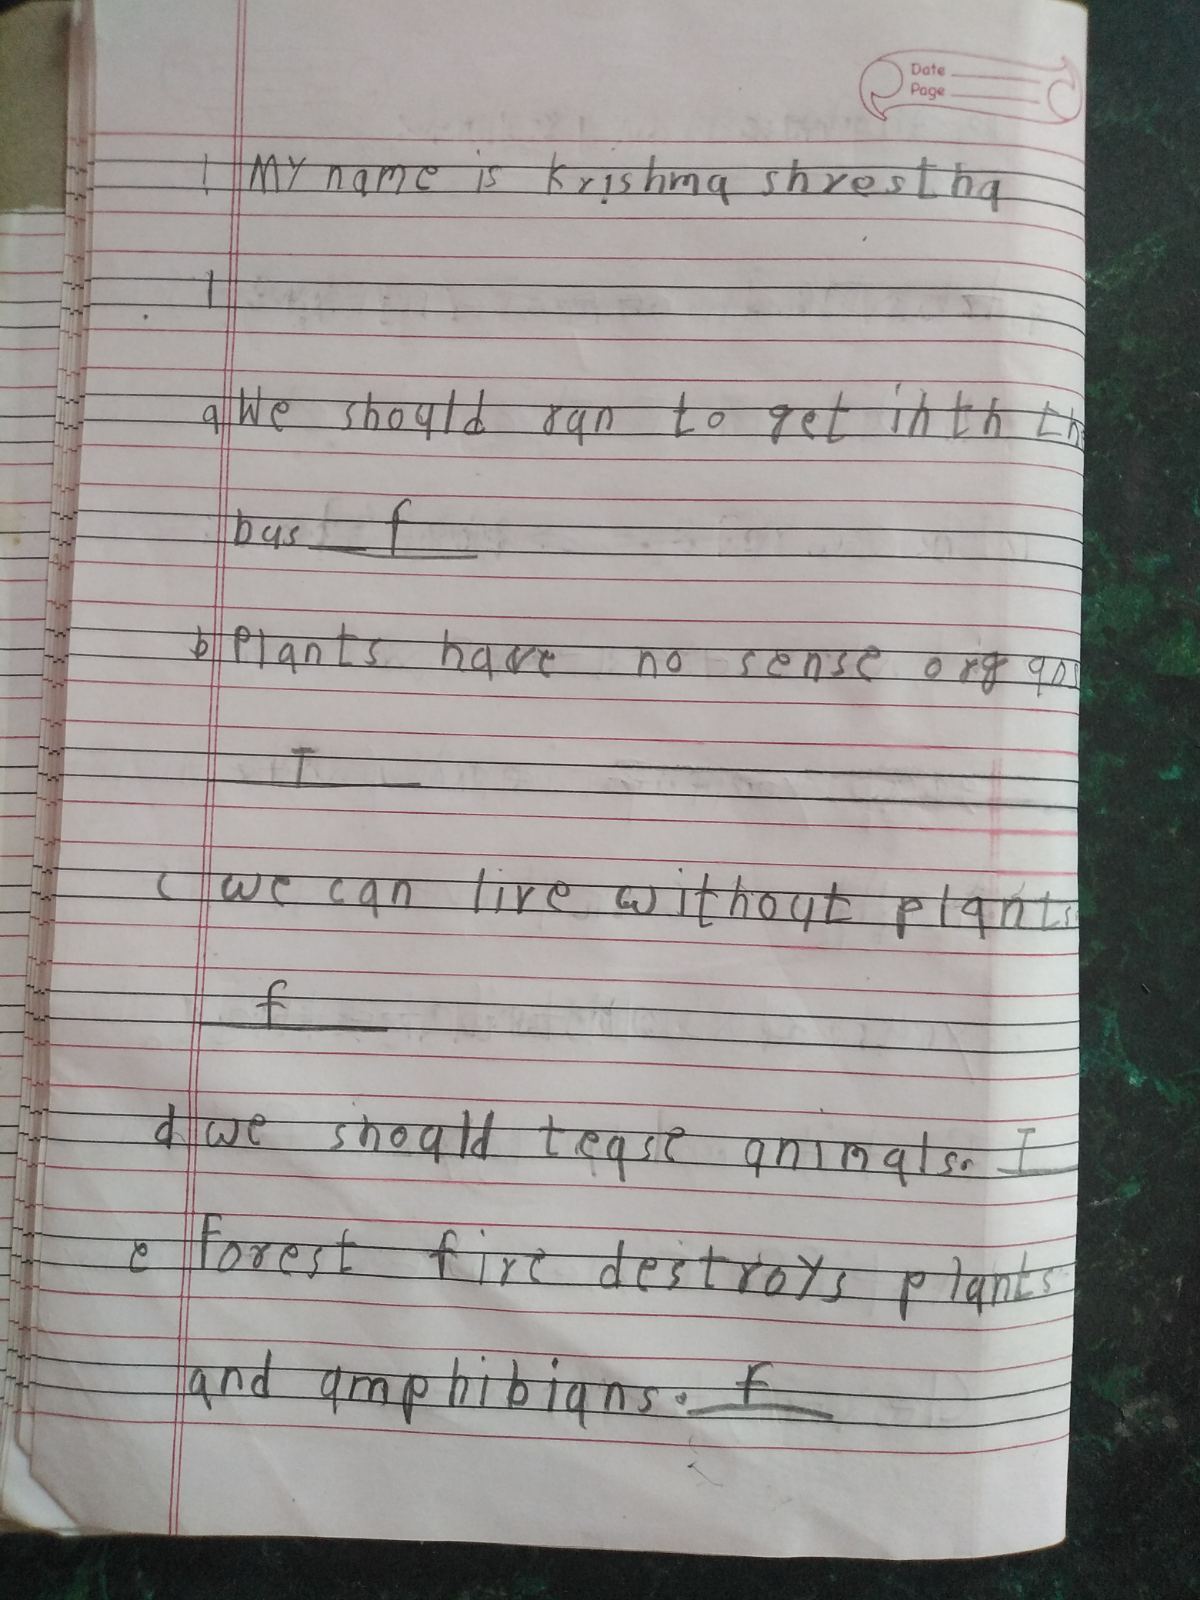 Date
Page
1 My name is Krishma shrestha
1
a We should ran to get inth the
bus f
b Plants have no sense organs
T
c we can live without plants
f
d we should tease animals. T
e Forest fire destroys plants
and amphibians. F